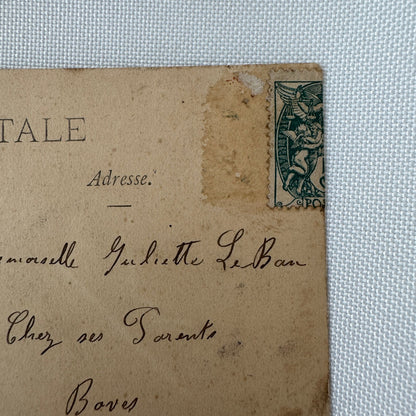 TALE
Adresse.
emoiselle Juliette Le Bau
Chez ses Parents
Boves